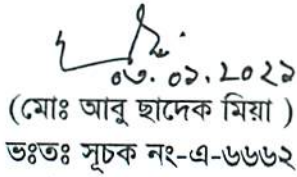 ০৩.০১.2০২১
(মোঃ আবু ছাদেক মিয়া )
ভঃতঃ সূচক নং-এ-৬৬৬২